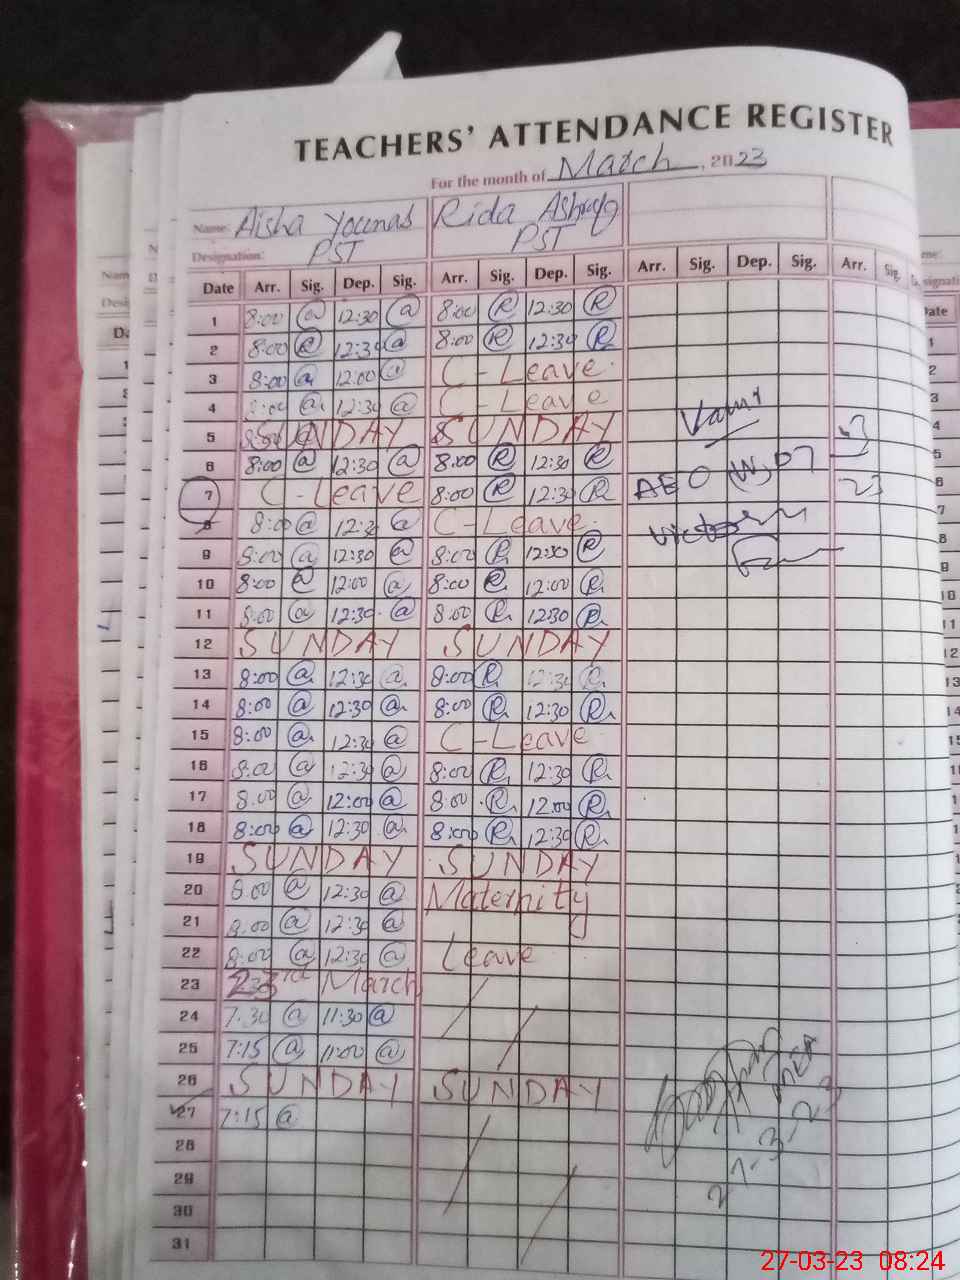 TEACHERS' ATTENDANCE REGISTER
For the month of March, 2023
Name: Aisha Younas Rida Ashraf
Designation: PST PST
Date Arr. Sig. Dep. Sig. Arr. Sig. Dep. Sig. Arr. Sig. Dep. Sig. Arr. Sig.
1 8:00 @ 12:30 @ 8:00 R 12:30 R
2 8:00 @ 12:30 @ 8:00 R 12:30 R
3 8:00 @ 12:00 @ C-Leave
4 8:00 @ 12:30 @ C-Leave
5 SUNDAY SUNDAY
6 8:00 @ 12:30 @ 8:00 R 12:30 R
7 C-Leave 8:00 R 12:30 R AEO (W)
8 8:00 @ 12:30 @ C-Leave
9 8:00 @ 12:30 @ 8:00 R 12:30 R
10 8:00 @ 12:00 @ 8:00 R 12:00 R
11 8:00 @ 12:30 @ 8:00 R 12:30 R
12 SUNDAY SUNDAY
13 8:00 @ 12:30 @ 8:00 R 12:30 R
14 8:00 @ 12:30 @ 8:00 R 12:30 R
15 8:00 @ 12:30 @ C-Leave
16 8:00 @ 12:30 @ 8:00 R 12:30 R
17 8:00 @ 12:00 @ 8:00 R 12:00 R
18 8:00 @ 12:30 @ 8:00 R 12:30 R
19 SUNDAY SUNDAY
20 8:00 @ 12:30 @ Maternity
21 8:00 @ 12:30 @
22 8:00 @ 12:30 @ Leave
23 23rd March
24 7:30 @ 11:30 @
25 7:15 @ 11:00 @
26 SUNDAY SUNDAY
27 7:15 @
28
29 27-3-23
30
31
27-03-23 08:24